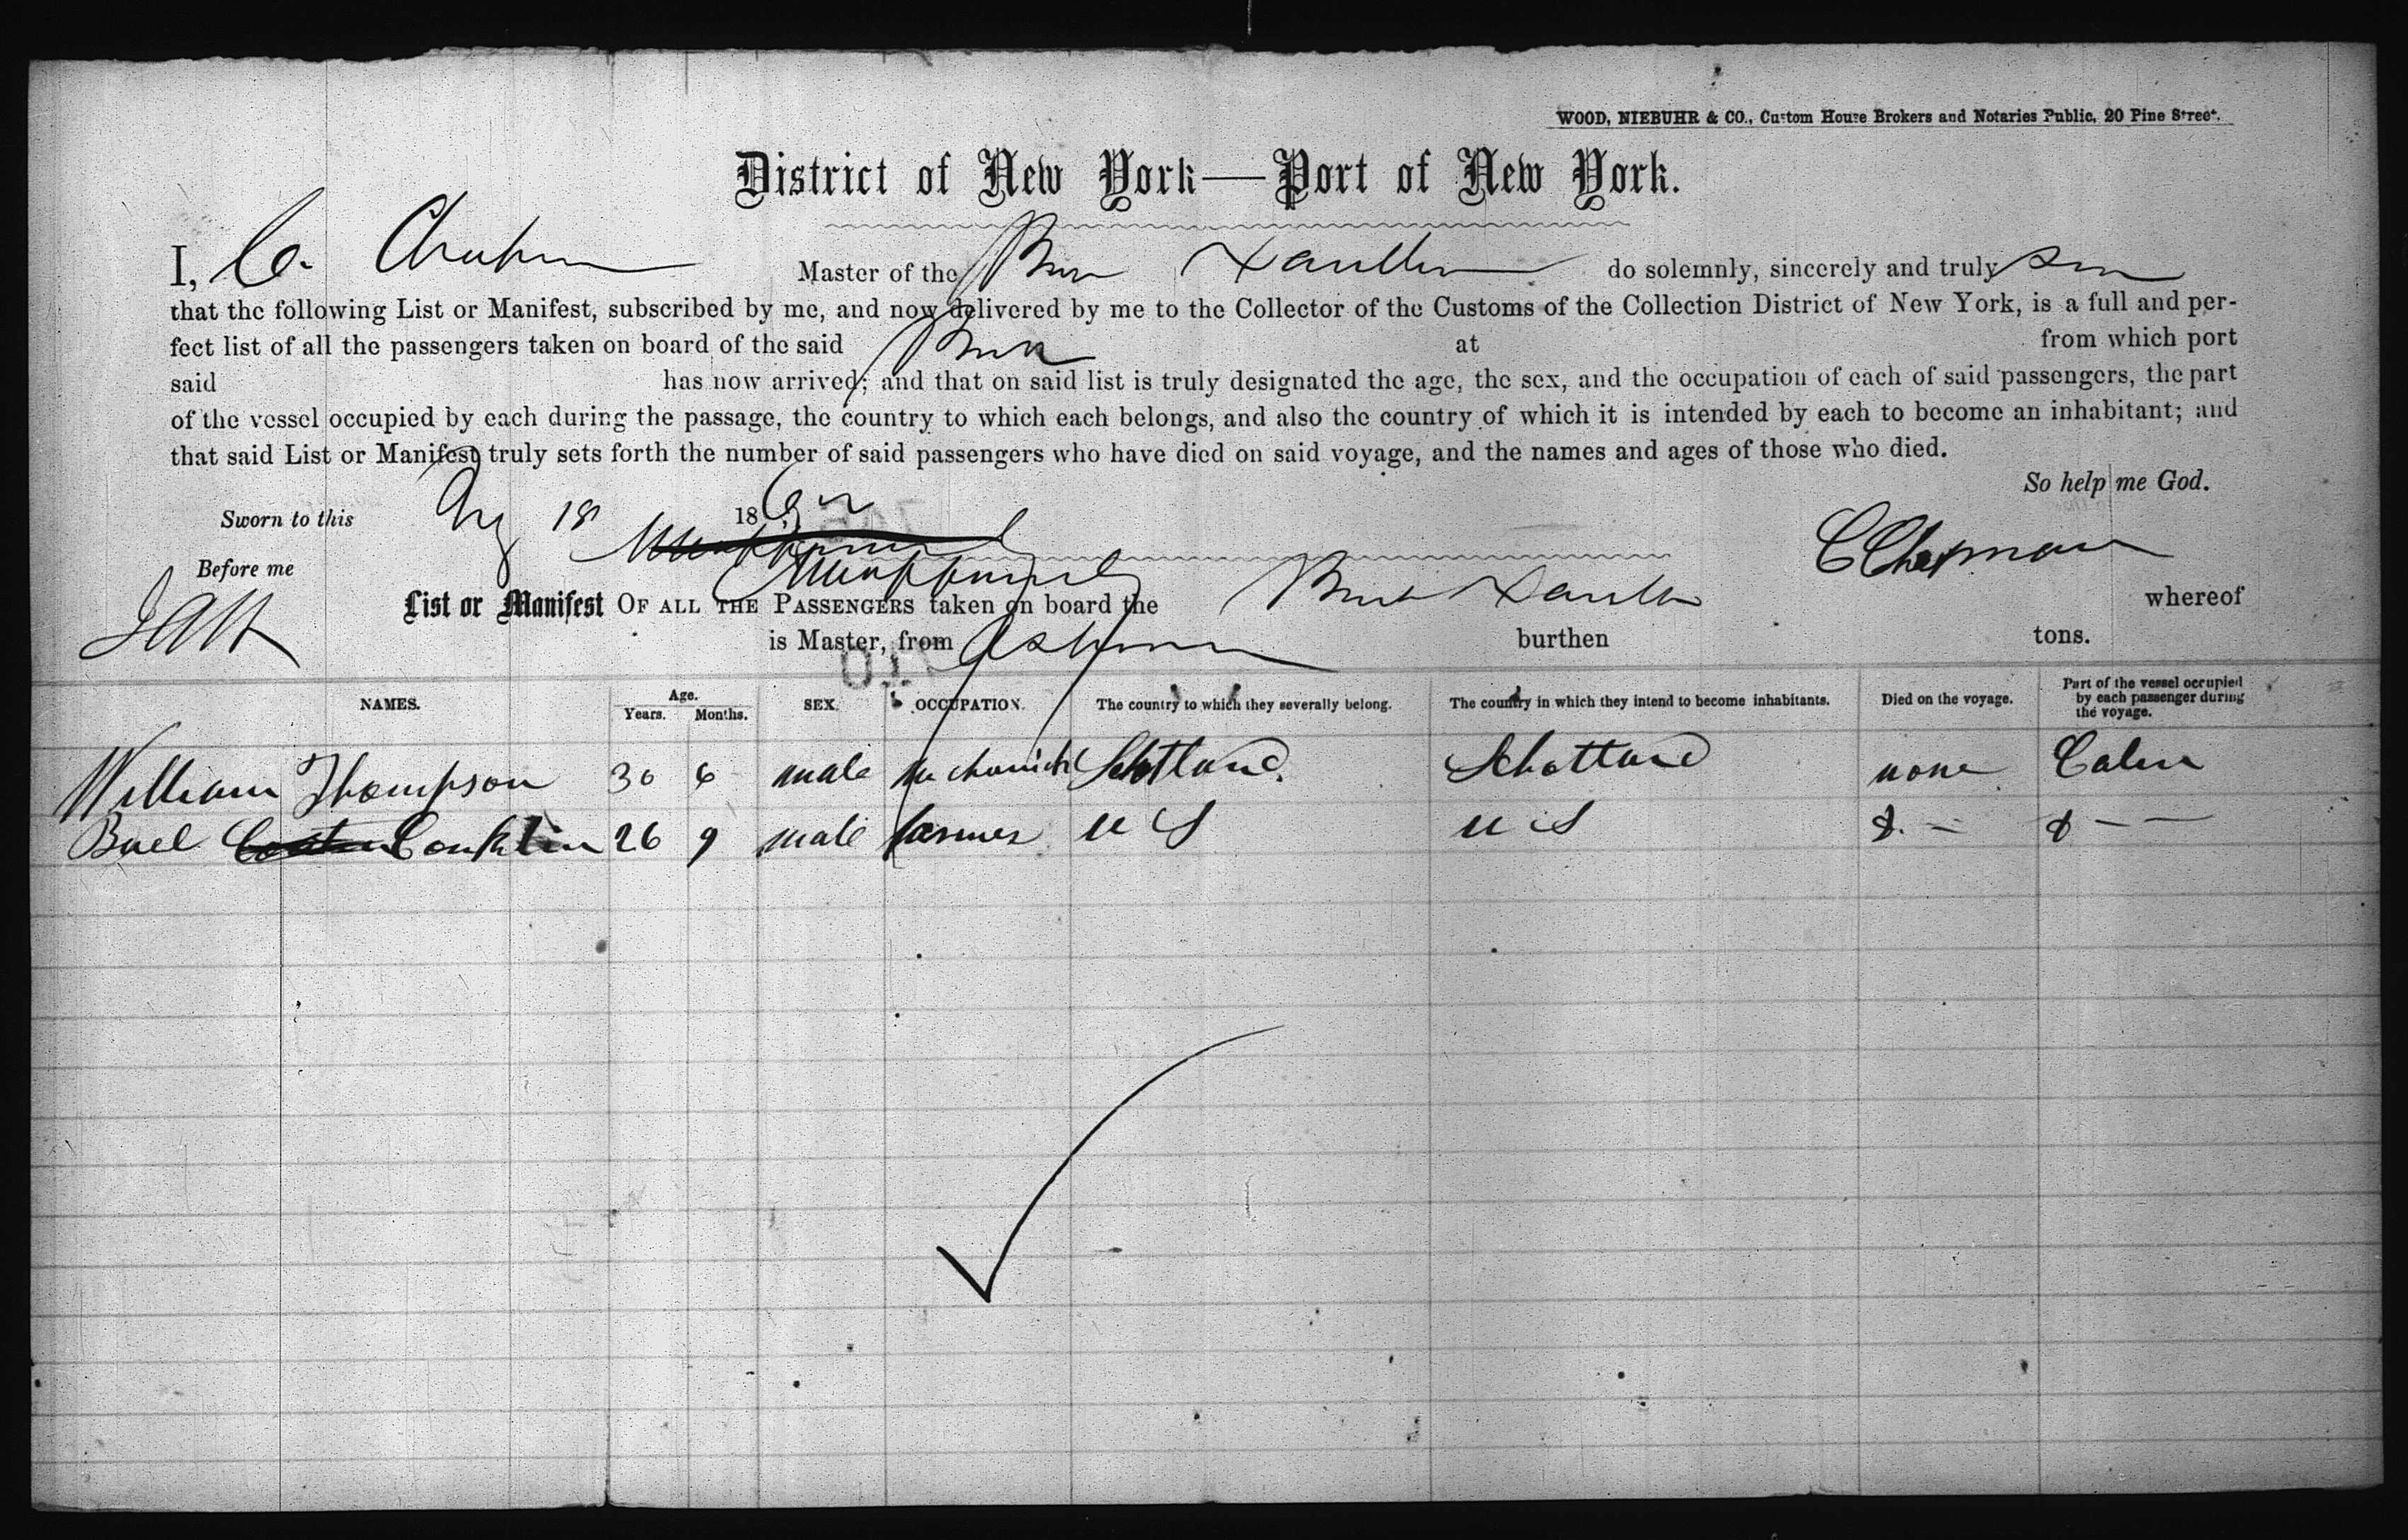 WOOD, NIEBUHR & CO., Custom House Brokers and Notaries Public, 20 Pine Street.
District of New York—Port of New York.
I, C. Chapman Master of the Xanthe do solemnly, sincerely and truly
that the following List or Manifest, subscribed by me, and now delivered by me to the Collector of the Customs of the Collection District of New York, is a full and per-
fect list of all the passengers taken on board of the said at from which port
said has now arrived; and that on said list is truly designated the age, the sex, and the occupation of each of said passengers, the part
of the vessel occupied by each during the passage, the country to which each belongs, and also the country of which it is intended by each to become an inhabitant; and
that said List or Manifest truly sets forth the number of said passengers who have died on said voyage, and the names and ages of those who died.
So help me God.
Sworn to this 18 18
C Chapman
Before me
List or Manifest OF ALL THE PASSENGERS taken on board the whereof
is Master, from burthen tons.
NAMES. Age. Years. Months. SEX. OCCUPATION. The country to which they severally belong. The country in which they intend to become inhabitants. Died on the voyage. Part of the vessel occupied by each passenger during the voyage.
William Thompson 30 6 male mechanick Schotland. Schottland none Cabin
Buel Conklin 26 9 male farmer U S U S